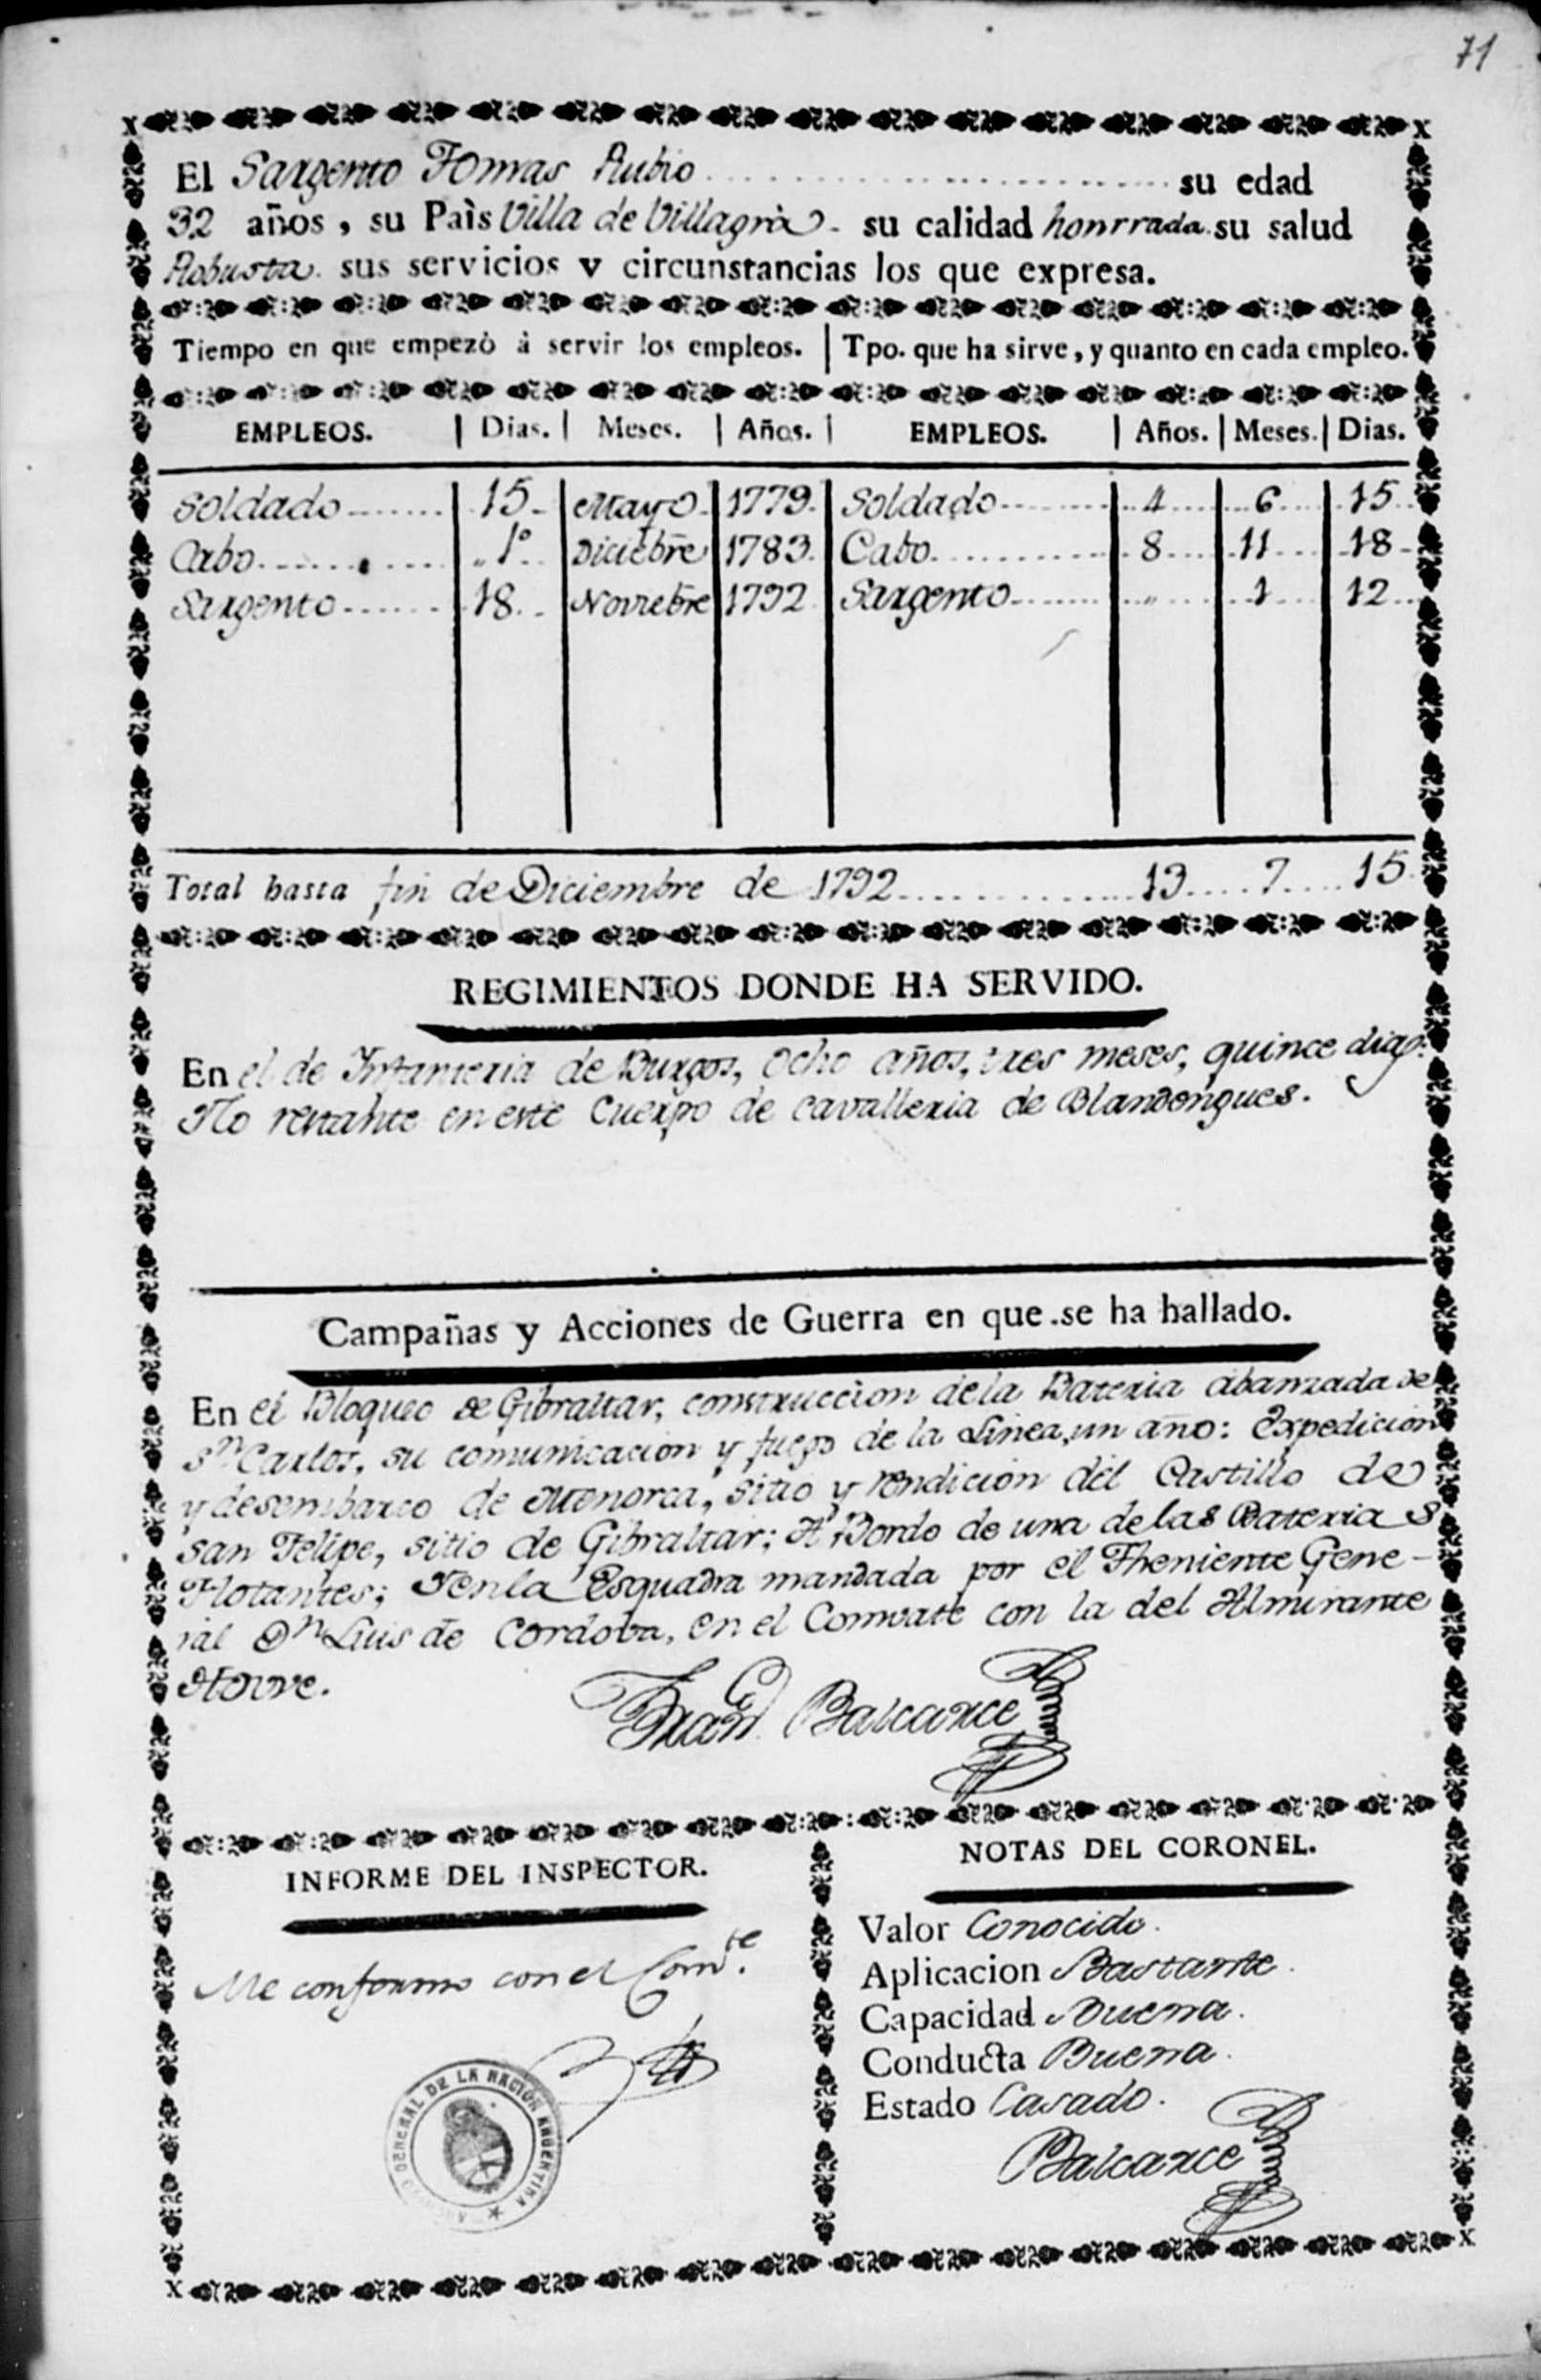 71
El Sargento Tomas Rubio su edad
32 años, su Paìs Villa de Villagrà su calidad honrrada su salud
Robusta sus servicios y circunstancias los que expresa.
Tiempo en que empezò à servir los empleos. | Tpo. que ha sirve, y quanto en cada empleo.
EMPLEOS. | Dias. | Meses. | Años. | EMPLEOS. | Años. | Meses. | Dias.
Soldado 15 Mayo 1779 Soldado 4 6 15
Cabo 1º Diciebre 1783 Cabo 8 11 18
Sargento 18 Noviebre 1792 Sargento " 1 12
Total hasta fin de Diciembre de 1792 13 7 15
REGIMIENTOS DONDE HA SERVIDO.
En el de Infanteria de Burgos, ocho años, tres meses, quince dias.
Ylo restante en este Cuerpo de cavalleria de Blandengues.
Campañas y Acciones de Guerra en que se ha hallado.
En el Bloqueo de Gibraltar, construccion dela Bateria abanzada de
Sn Carlos, su comunicacion y fuego de la Linea, un año: Expedicion
y desembarco de Menorca, sitio y rendicion del Castillo de
San Felipe, sitio de Gibraltar; A Bordo de una de las Baterias
Flotantes; Yenla Esquadra mandada por el Theniente Gene-
ral Dn Luis de Cordova, en el Comvate con la del Almirante
Howe.
Franco Balcarce
INFORME DEL INSPECTOR.
Me conformo con el Comte.
ARCHIVO GENERAL DE LA NACION ARGENTINA
NOTAS DEL CORONEL.
Valor Conocido.
Aplicacion Bastante.
Capacidad Buena.
Conducta Buena.
Estado Casado.
Balcarce